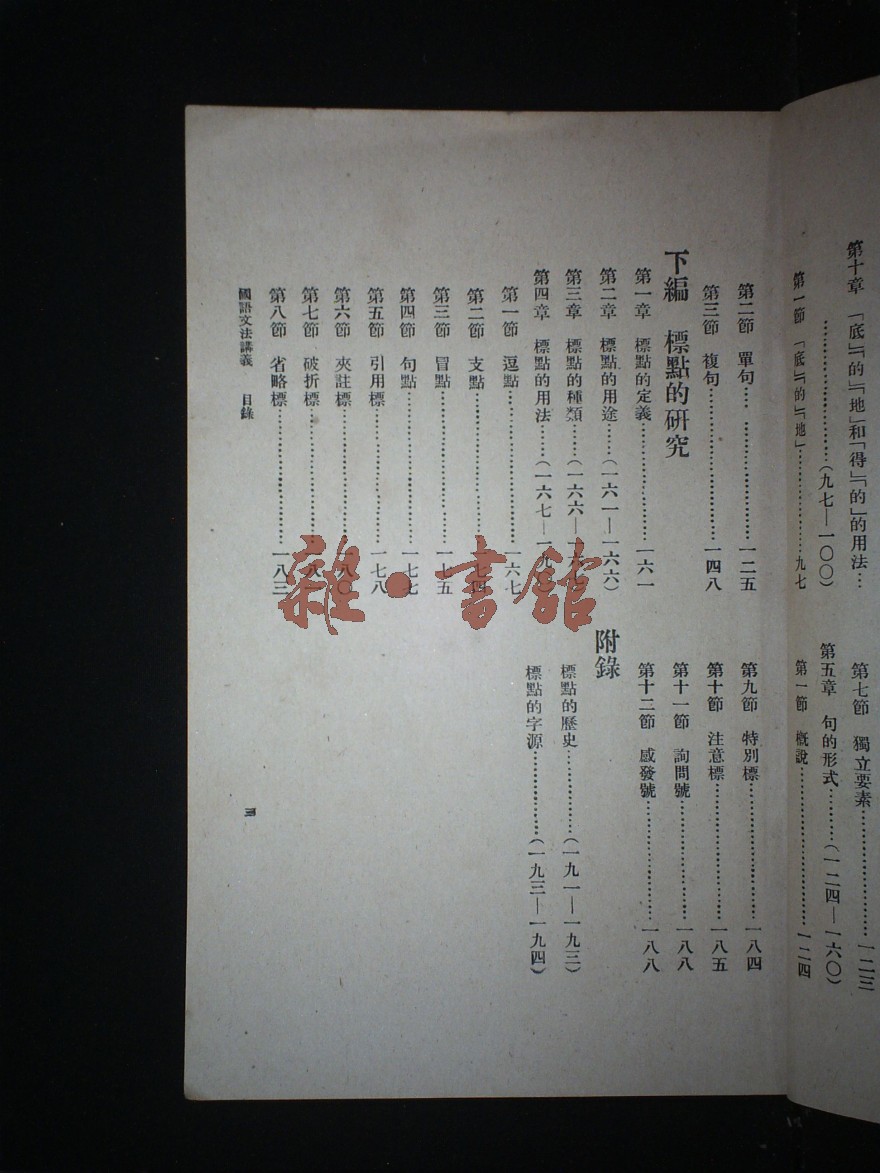 第十章 「底」「的」「地」和「得」「的」的用法…
……………………(九七—一〇〇)
第一節 「底」「的」「地」………………九七
第七節 獨立要素………………一二三
第五章 句的形式………(一二四—一六〇)
第一節 概說………………………一二四
第二節 單句… ………………一二五
第三節 複句…………………一四八
下編 標點的研究
第一章 標點的定義………………一六一
第二章 標點的用途……(一六一—一六六)
第三章 標點的種類……(一六六—一六七)
第四章 標點的用法……(一六七—一九〇)
第一節 逗點…………………一六七
第二節 支點…………………一七四
第三節 冒點…………………一七五
第四節 句點…………………一七七
第五節 引用標………………一七八
第六節 夾註標………………一八〇
第七節 破折標………………
第八節 省略標………………一八三
第九節 特別標………………一八四
第十節 注意標………………一八五
第十一節 詢問號……………一八八
第十二節 感發號……………一八八
附錄
標點的歷史…………(一九一—一九三)
標點的字源…………(一九三—一九四)
國語文法講義 目錄
三
雜·書館